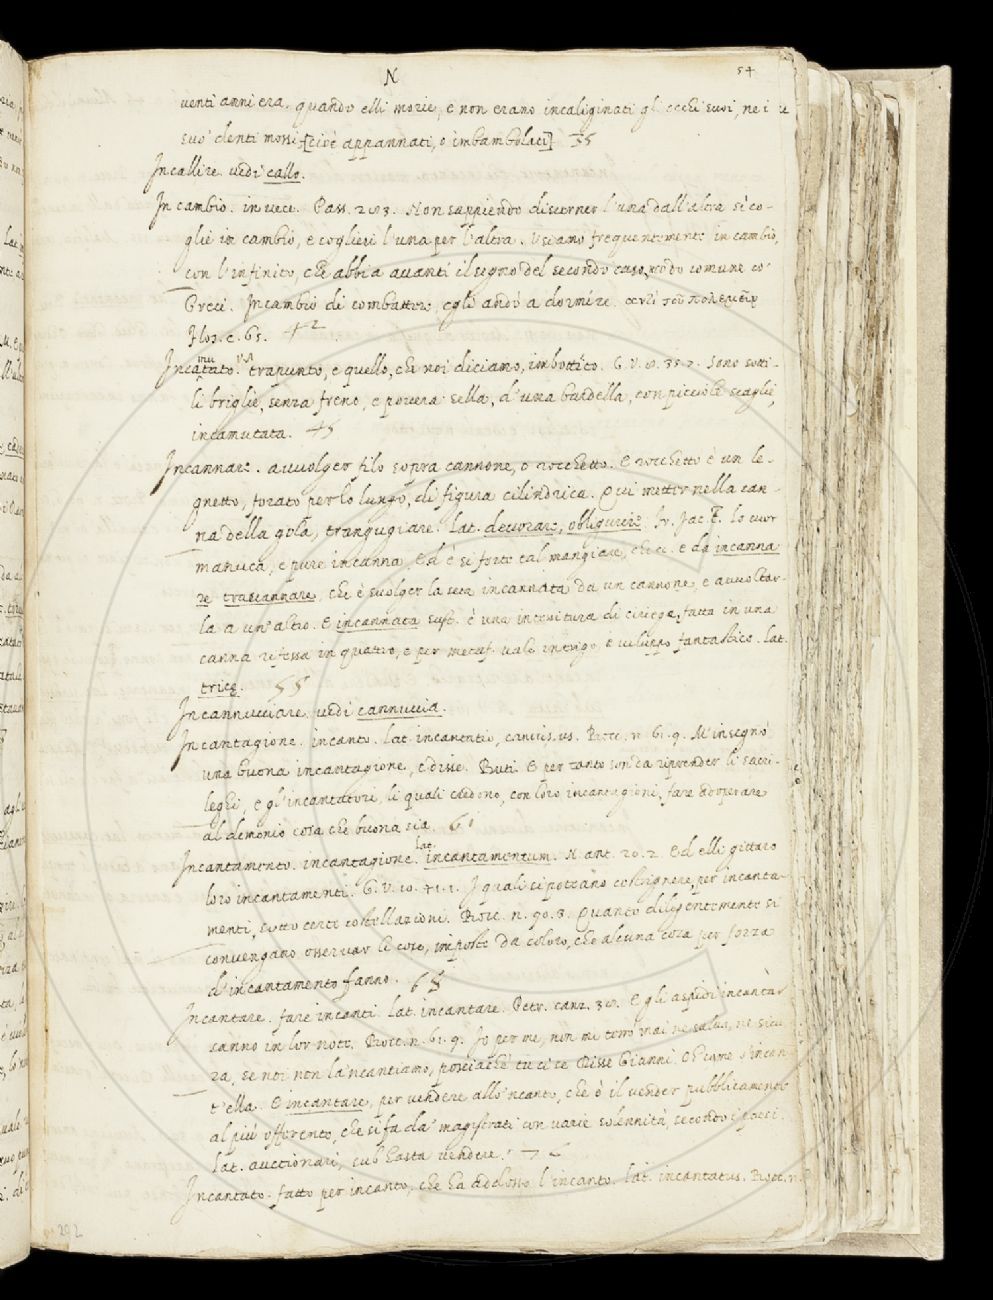 N
54
venti anni era. quando elli morie, e non erano incaliginati gl'occhi suoi, ne i
suo' denti mossi [cioè appannati, o imbambolati] 35
Incallire vedi callo.
In cambio. in vece. Pass. 203. Non sappiendo discerner l'una dall'altra si co-
glie in cambio, e cogliesi l'una per l'altra. Usiamo frequentemente in cambio,
con l'infinito, che abbia avanti il segno del secondo caso, modo comune co'
Greci. In cambio di combattere, egli andò a dormire. ἀντὶ τοῦ πολεμεῖν
Flos. c. 65. 42
Incamutato. trapunto, e quello, che noi diciamo, imbottito. G. V. 8. 35. 7. Sono sotti-
li briglie, senza freno, e povera sella, d'una bardella, con picciole scaglie,
incamutata. 45
Incannare. avvolger filo sopra cannone, o rocchetto. E rocchetto è un le-
gnetto, forato per lo lungo, di figura cilindrica. Qui metter nella can-
na della gola, trangugiare. lat. devorare, obligurire. Fr. Jac. T. Lo cuor
manuca, e pure incanna, Ed è si forte cal mangiare, che &c. e da incanna
re trascannare, che è svolger la seta incannata da un cannone, e avvoltar-
la a un'altro. E incannata sust. è una intenitura di ciriege, fatta in una
canna rifessa in quattro, e per metaf. vale intrigo, e viluppo fantastico. lat.
trice. 55
Incannucciare vedi cannuccia.
Incantagione. incanto. lat. incantatio, canticus. us. Bocc. n. 61. 9. M'insegnò
una buona incantagione, e disse. Buti. E per tanto son da riprender li sacri-
leghi, e gl'incantatori, li quali credono, con loro incantagioni, fare adoperare
al demonio cosa che buona sia. 61
Incantamento. incantagione. lat. incantamentum. N. ant. 20. 2. Ed elli gittaro
loro incantamenti. G. V. 10. 41. 1. I quali si potean costrignere, per incanta-
menti, sotto certe costellazioni. Bocc. n. 90. 3. Quanto diligentemente si
convengano osservar le cose, imposte da coloro, che alcuna cosa per forza
d'incantamento fanno. 68
Incantare. fare incanti. lat. incantare. Petr. canz. 38. E gli aspidi incantar
sanno in lor note. Bocc. n. 61. 9. Io per me, non mi terrò mai ne salva, ne sicu
ra, se noi non la'ncantiamo, posciachè tu ci se Disse Gianni. O come s'incan
t'ella. E incantare, per vendere allo'ncanto, che è il vender pubblicamente
al più offerente, che si fa da' magistrati con varie solennità, secondo i paesi.
lat. auctionari, sub hasta vendere. 76
Incantato. fatto per incanto, che ha addosso l'incanto. lat. incantatus. Bocc. n.
292